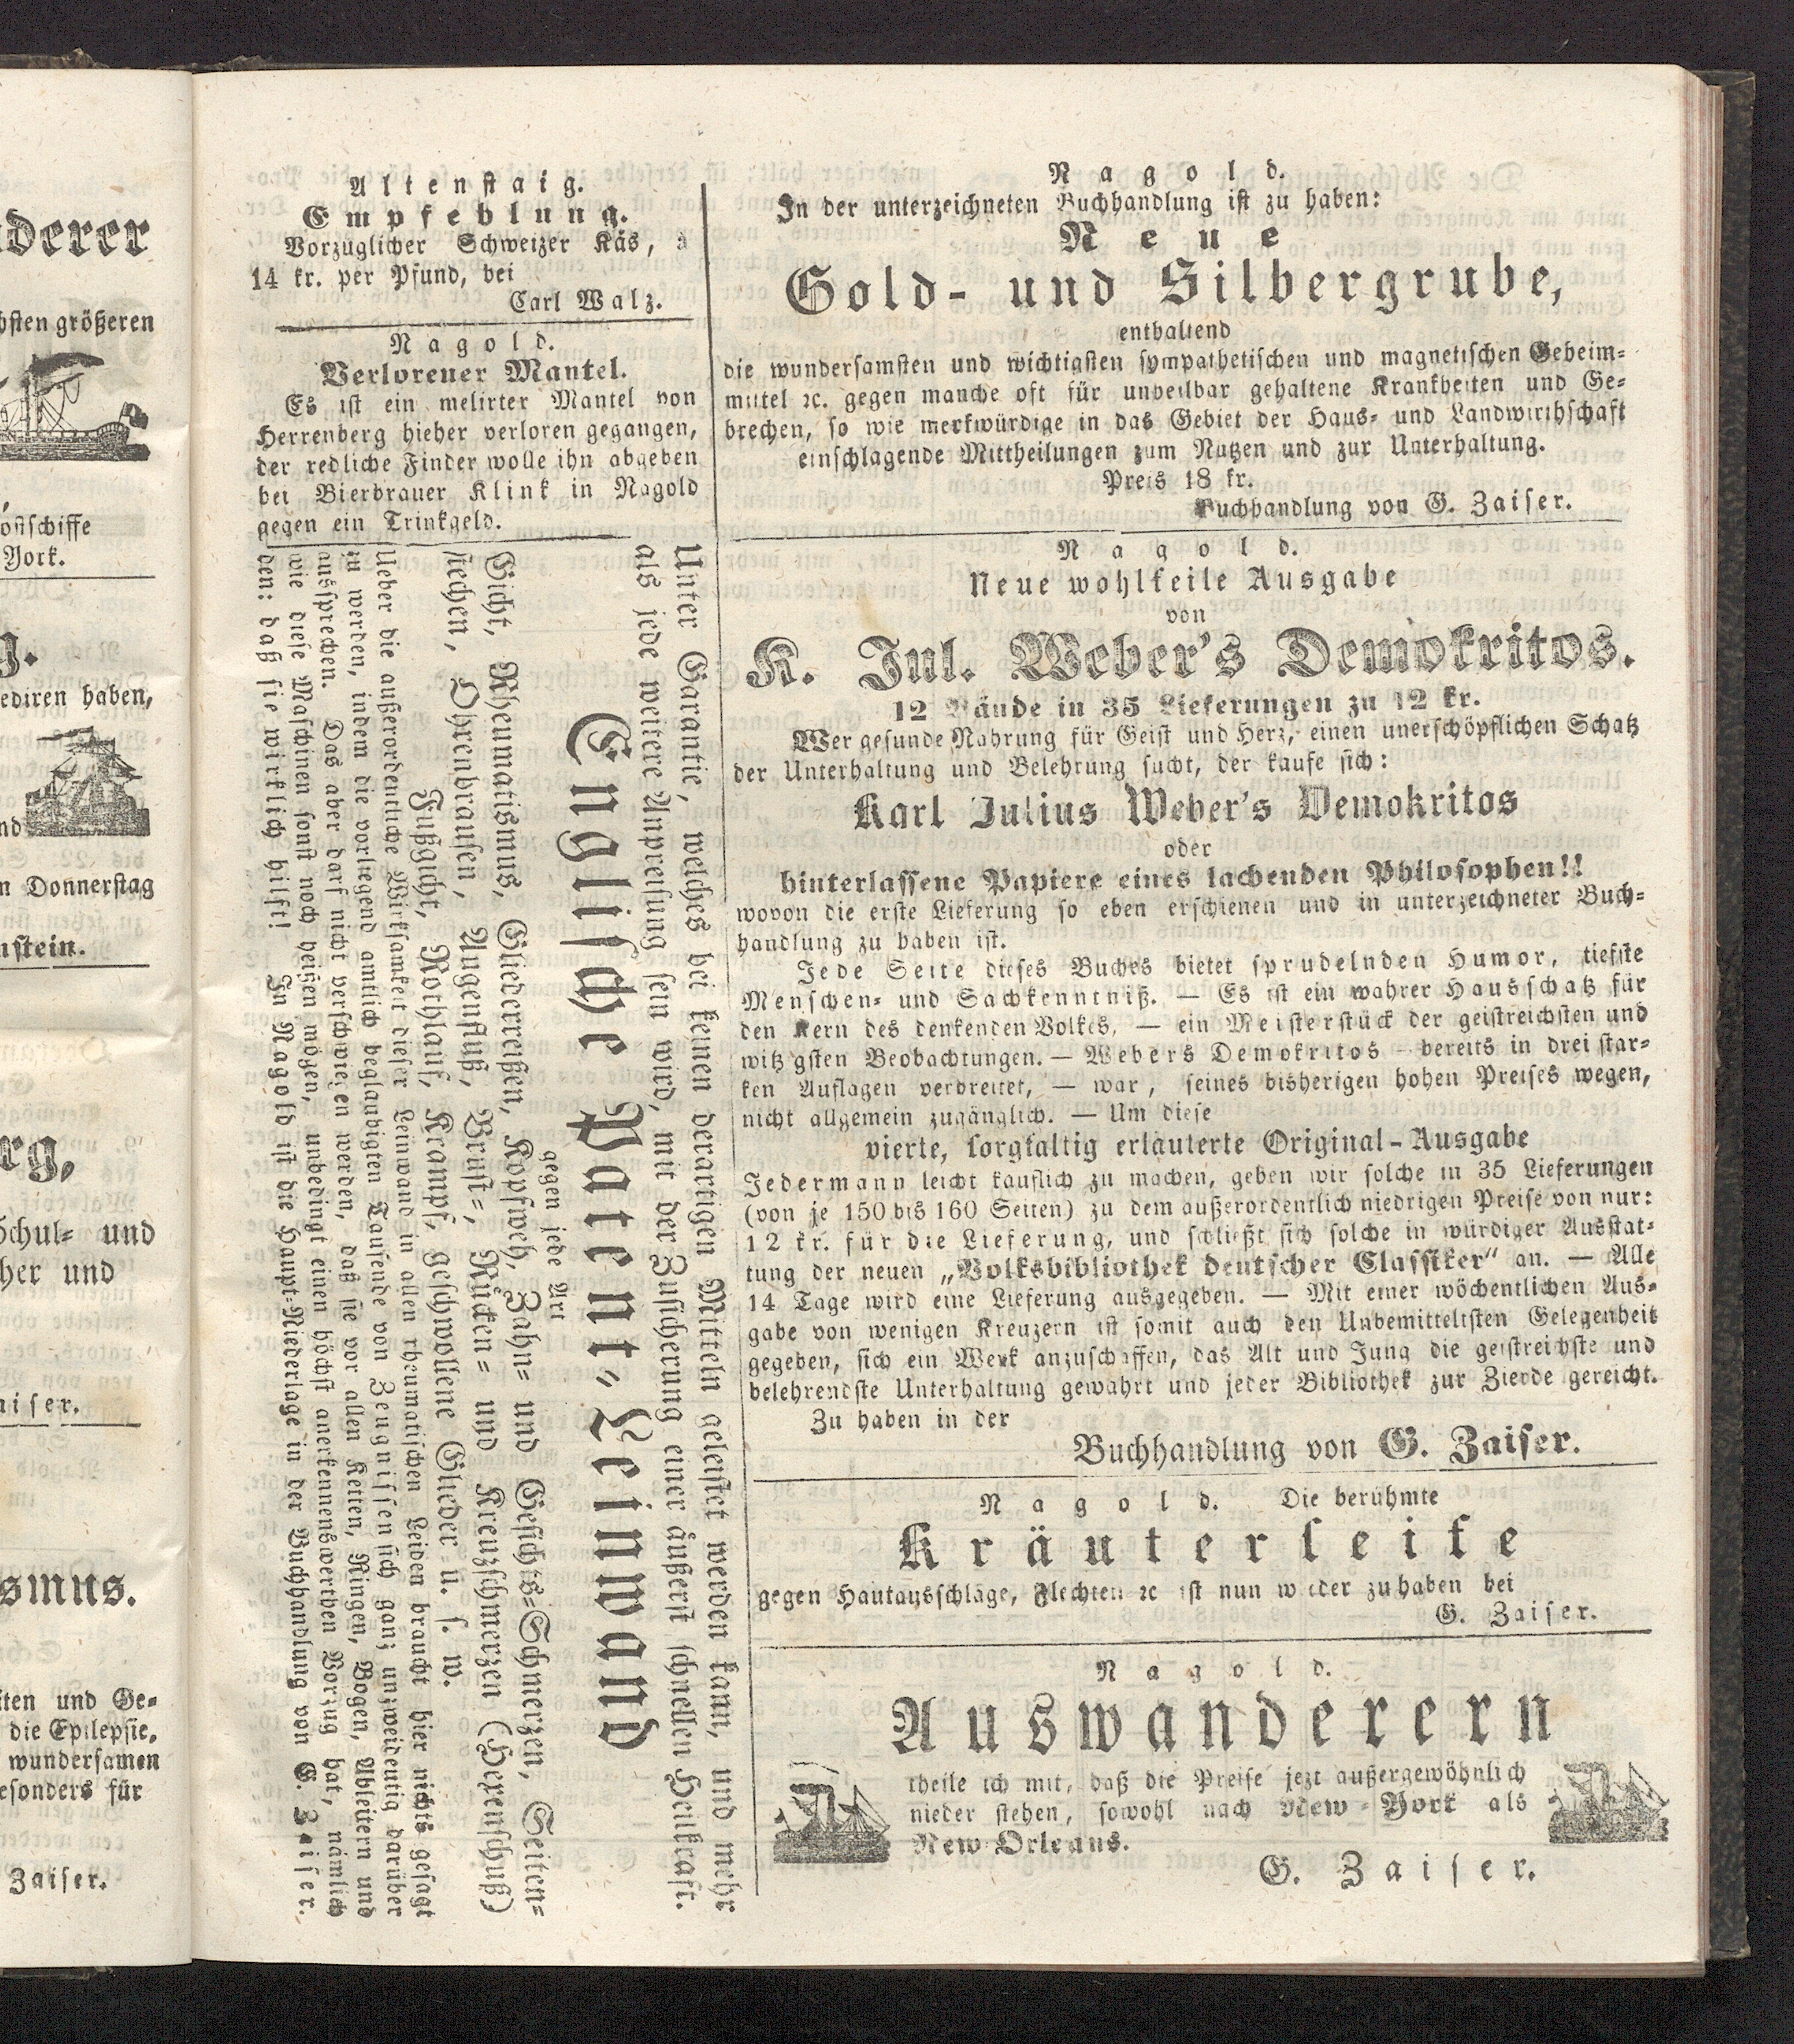 derer
bsten größeren
oſtſchiffe
York.
g.
ediren haben,
nd
n Donnerſtag
nſtein.
rg,
Schul= und
her und
aiſer.
smus.
iten und Ge=
die Epilepſie,
wunderſamen
eſonders für
Zaiſer.
Altenſtaig.
Empfehlung.
Vorzüglicher Schweizer Käs, à
14 kr. per Pfund, bei
Carl Walz.
Nagold.
Verlorener Mantel.
Es iſt ein melirter Mantel von
Herrenberg hieher verloren gegangen,
der redliche Finder wolle ihn abgeben
bei Bierbrauer Klink in Nagold
gegen ein Trinkgeld.
Unter Garantie, welches bei keinen derartigen Mitteln geleiſtet werden kann, und mehr
als jede weitere Anpreiſung ſein wird, mit der Zuſicherung einer äußerſt ſchnellen Heilkraft.
Engliſche Patent=Leinwand
gegen jede Art
Gicht, Rheumatismus, Gliederreißen, Kopfweh, Zahn= und Geſichts=Schmerzen, Seiten=
ſtechen, Ohrenbrauſen, Augenfluß, Bruſt=, Rücken= und Kreuzſchmerzen (Hexenſchuß)
Fußgicht, Rothlauf, Krampf, geſchwollene Glieder u. ſ. w.
Ueber die außerordentliche Wirkſamkeit dieſer Leinwand in allen rheumatiſchen Leiden braucht hier nichts geſagt
zu werden, indem die vorliegend amtlich beglaubigten Tauſende von Zeugniſſen ſich ganz unzweideutig darüber
ausſprechen. Das aber darf nicht verſchwiegen werden, daß ſie vor allen Ketten, Ringen, Bogen, Ableitern und
wie dieſe Maſchinen ſonſt noch heißen mögen, unbedingt einen höchſt anerkennenswerthen Vorzug hat, nämlich
den: daß ſie wirklich hilft! In Nagold iſt die Haupt=Niederlage in der Buchhandlung von G. Zaiſer.
Nagold.
In der unterzeichneten Buchhandlung iſt zu haben:
Neue
Gold- und Silbergrube,
enthaltend
die wunderſamſten und wichtigſten ſympathetiſchen und magnetiſchen Geheim=
mittel ꝛc. gegen manche oft für unheilbar gehaltene Krankheiten und Ge=
brechen, ſo wie merkwürdige in das Gebiet der Haus= und Landwirthſchaft
einſchlagende Mittheilungen zum Nutzen und zur Unterhaltung.
Preis 18 kr.
Buchhandlung von G. Zaiſer.
Nagold.
Neue wohlfeile Ausgabe
von
K. Jul. Weber's Demokritos.
12 Bände in 35 Lieferungen zu 12 kr.
Wer geſunde Nahrung für Geiſt und Herz, einen unerſchöpflichen Schatz
der Unterhaltung und Belehrung ſucht, der kaufe ſich:
Karl Julius Weber's Demokritos
oder
hinterlaſſene Papiere eines lachenden Philoſophen!!
wovon die erſte Lieferung ſo eben erſchienen und in unterzeichneter Buch=
handlung zu haben iſt.
Jede Seite dieſes Buches bietet ſprudelnden Humor, tiefſte
Menſchen= und Sachkenntniß. — Es iſt ein wahrer Hausſchatz für
den Kern des denkenden Volkes, — ein Meiſterſtück der geiſtreichſten und
witzigſten Beobachtungen. — Webers Demokritos — bereits in drei ſtar=
ken Auflagen verbreitet, — war, ſeines bisherigen hohen Preiſes wegen,
nicht allgemein zugänglich. — Um dieſe
vierte, ſorgfältig erläuterte Original-Ausgabe
Jedermann leicht käuflich zu machen, geben wir ſolche in 35 Lieferungen
(von je 150 bis 160 Seiten) zu dem außerordentlich niedrigen Preiſe von nur:
12 kr. für die Lieferung, und ſchließt ſich ſolche in würdiger Ausſtat=
tung der neuen „Volksbibliothek deutſcher Claſſiker“ an. — Alle
14 Tage wird eine Lieferung ausgegeben. — Mit einer wöchentlichen Aus=
gabe von wenigen Kreuzern iſt ſomit auch den Unbemitteltſten Gelegenheit
gegeben, ſich ein Werk anzuſchaffen, das Alt und Jung die geiſtreichſte und
belehrendſte Unterhaltung gewährt und jeder Bibliothek zur Zierde gereicht.
Zu haben in der
Buchhandlung von G. Zaiſer.
Nagold. Die berühmte
Kräuterſeife
gegen Hautausſchläge, Flechten ꝛc iſt nun wieder zu haben bei
G. Zaiſer.
Nagold.
Auswanderern
theile ich mit, daß die Preiſe jezt außergewöhnlich
nieder ſtehen, ſowohl nach New-York als
New Orleans.
G. Zaiſer.